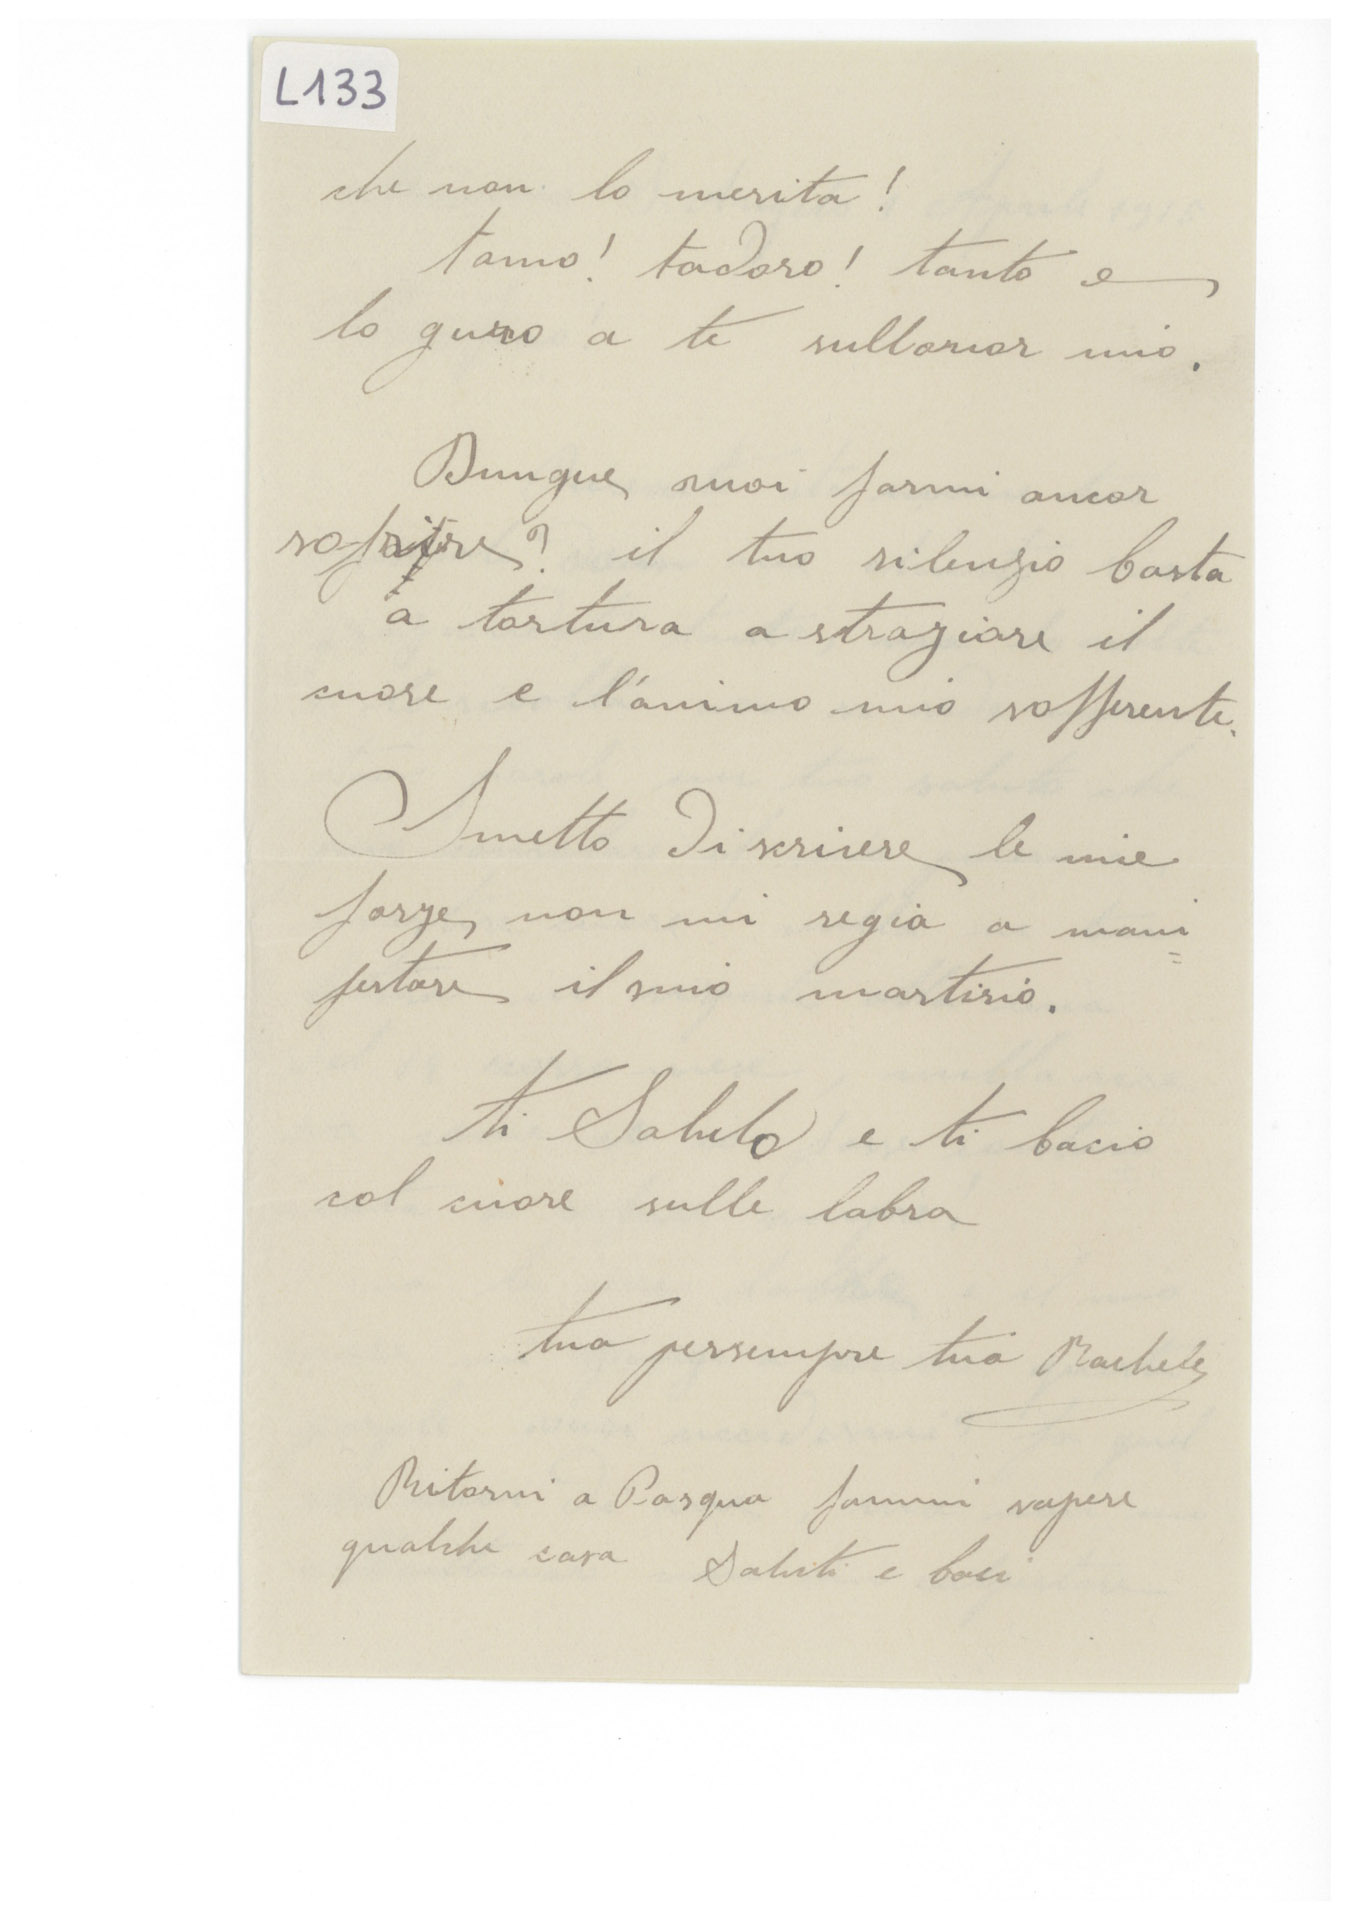 L133
che non lo merita!
tamo! tadoro! tanto e
lo guro a te sullonor mio.
Dunque, vuoi farmi ancor
soffrire? il tuo silenzio basta
a tortura a straziare il
cuore e l'animo mio sofferente.
Smetto di scrivere, le mie
forze, non mi regia a mani
festare il mio martirio.
ti Saluto e ti bacio
col cuore sulle labra
tua persempre tua Rachele
Ritorni a Pasqua fammi sapere
qualche cosa Saluti e baci